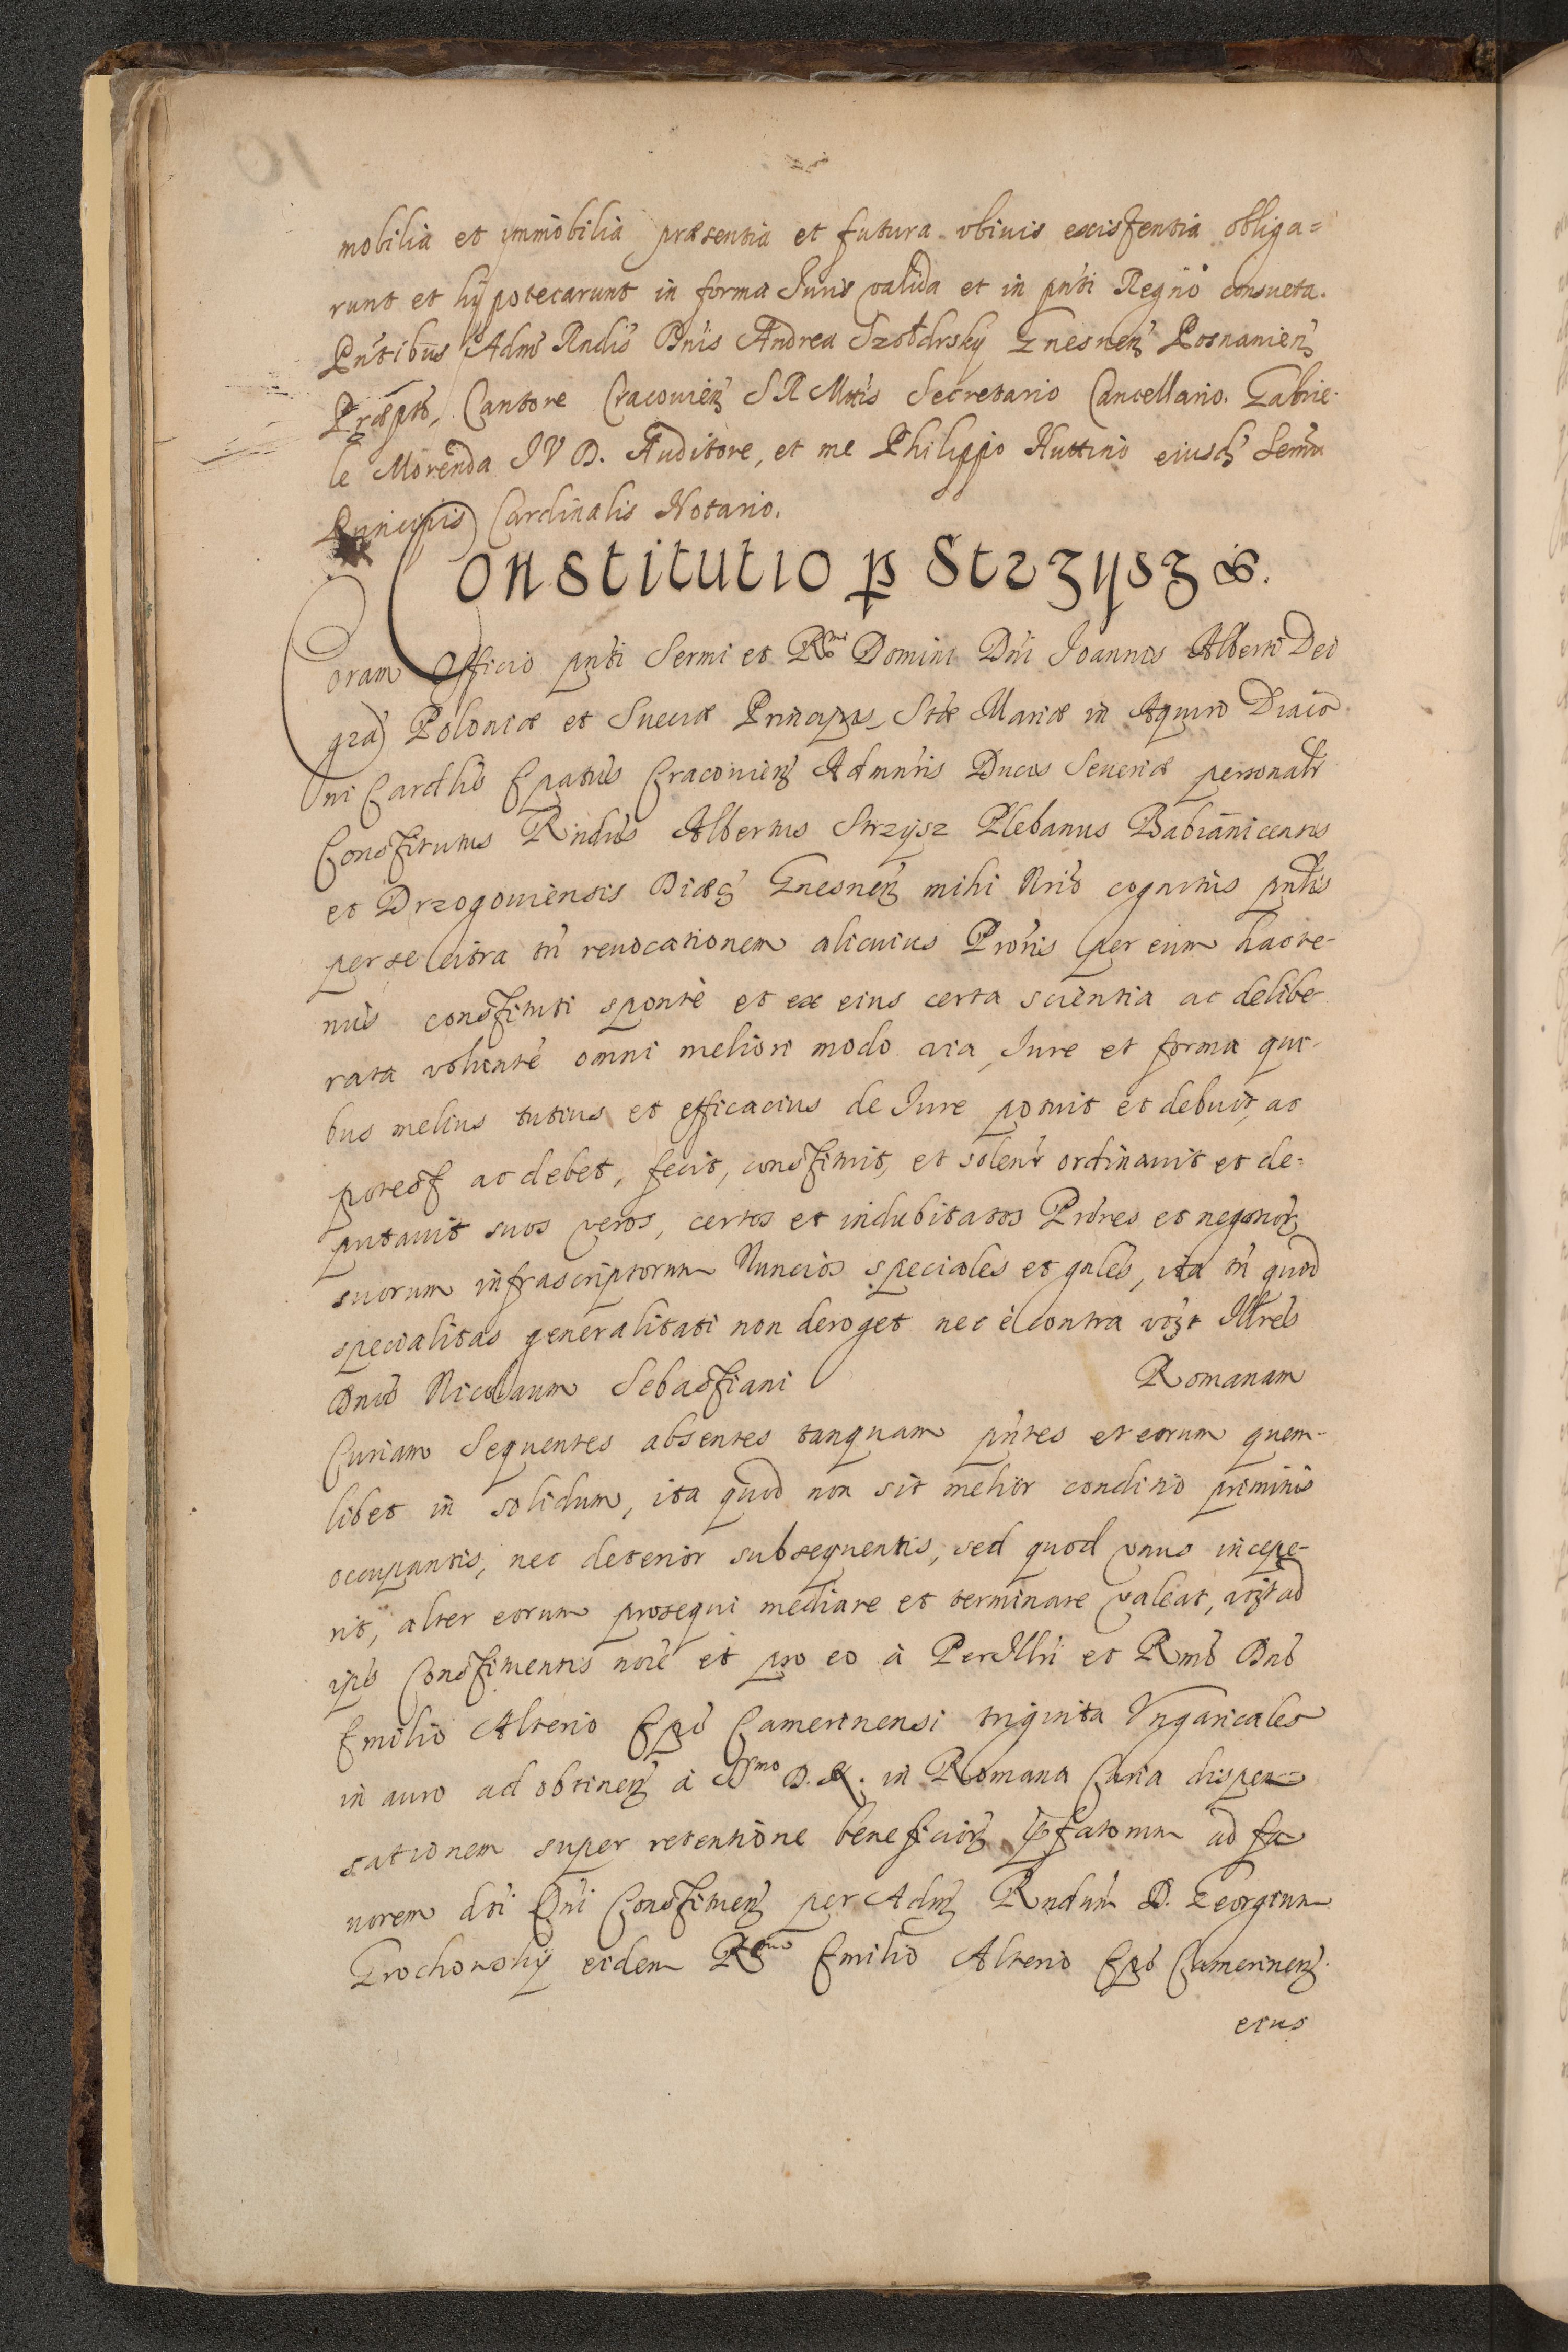 mobilia et immobilia præsentia et futura ubiuis existentia obliga=
runt et hypotecarunt in forma Iuris valida et in pñti Regno consueta.
Pñtibus Adm Rndis Dnis Andrea Szołdrsky Gnesneñ Posnanieñ
Præpto, Cantore Cracouieñ S R Mttis Secretario Cancellario. Gabrie-
le Morenda IV D. Auditore, et me Philippo Huttino eiusd Sermi
Principis Cardinalis Notario.
Constitutio p Strzysz &.
Coram Officio pnti Sermi et Rmi Domini Dni Ioannis Alberti Dei
gra Poloniæ et Sueciæ Principis Stæ Mariæ in Aquiro Diaco
ni Cardlis Epatus Cracouien Admnris Ducis Seueriæ personalr
Constitutus Rndus Albertus Strzysz Plebanus Babianicensis
et Drzogouiensis Diæc Gnesneñ mihi Nrio cognitus pntis
per se citra tn reuocationem alicuius Proris per eum hacte-
nus constituti sponte et ex eius certa scientia ac delibe
rata volunte omni meliori modo via, Iure et forma qui-
bus melius tutius et efficacius de Iure potuit et debuit, ac
potest ac debet, fecit, constituit, et solenr ordinauit et de=
putauit suos veros, certos et indubitatos Prores et negotior
suorum infrascriptorum Nuncios speciales et gnles, ita tn quod
specialitas generalitati non deroget nec è contra vizt Illres
Dnos Nicolaum Sebastiani Romanam
Curiam Sequentes absentes tanquam pñtes et eorum quem-
libet in solidum, ita quod non sit melior conditio primitus
occupantis, nec deterior subsequentis, sed quod vnus incepe-
rit, alter eorum prosequi mediare et terminare valeat, vizt ad
ipso Constituentis noie et pro eo à PerIllri et Rmo Dno
Emilio Alterio Epo Camerinensi triginta Vngaricales
in auro ad obtinen à Smo D. N. in Romana Curia dispen=
sationem super retentione beneficior pfatorum ad fa
uorem dti Dni Constituen per Adm Rndum D. Georgium
Grochowsky eidem Rmo Emilio Alterio Epo Camerinen.
eius